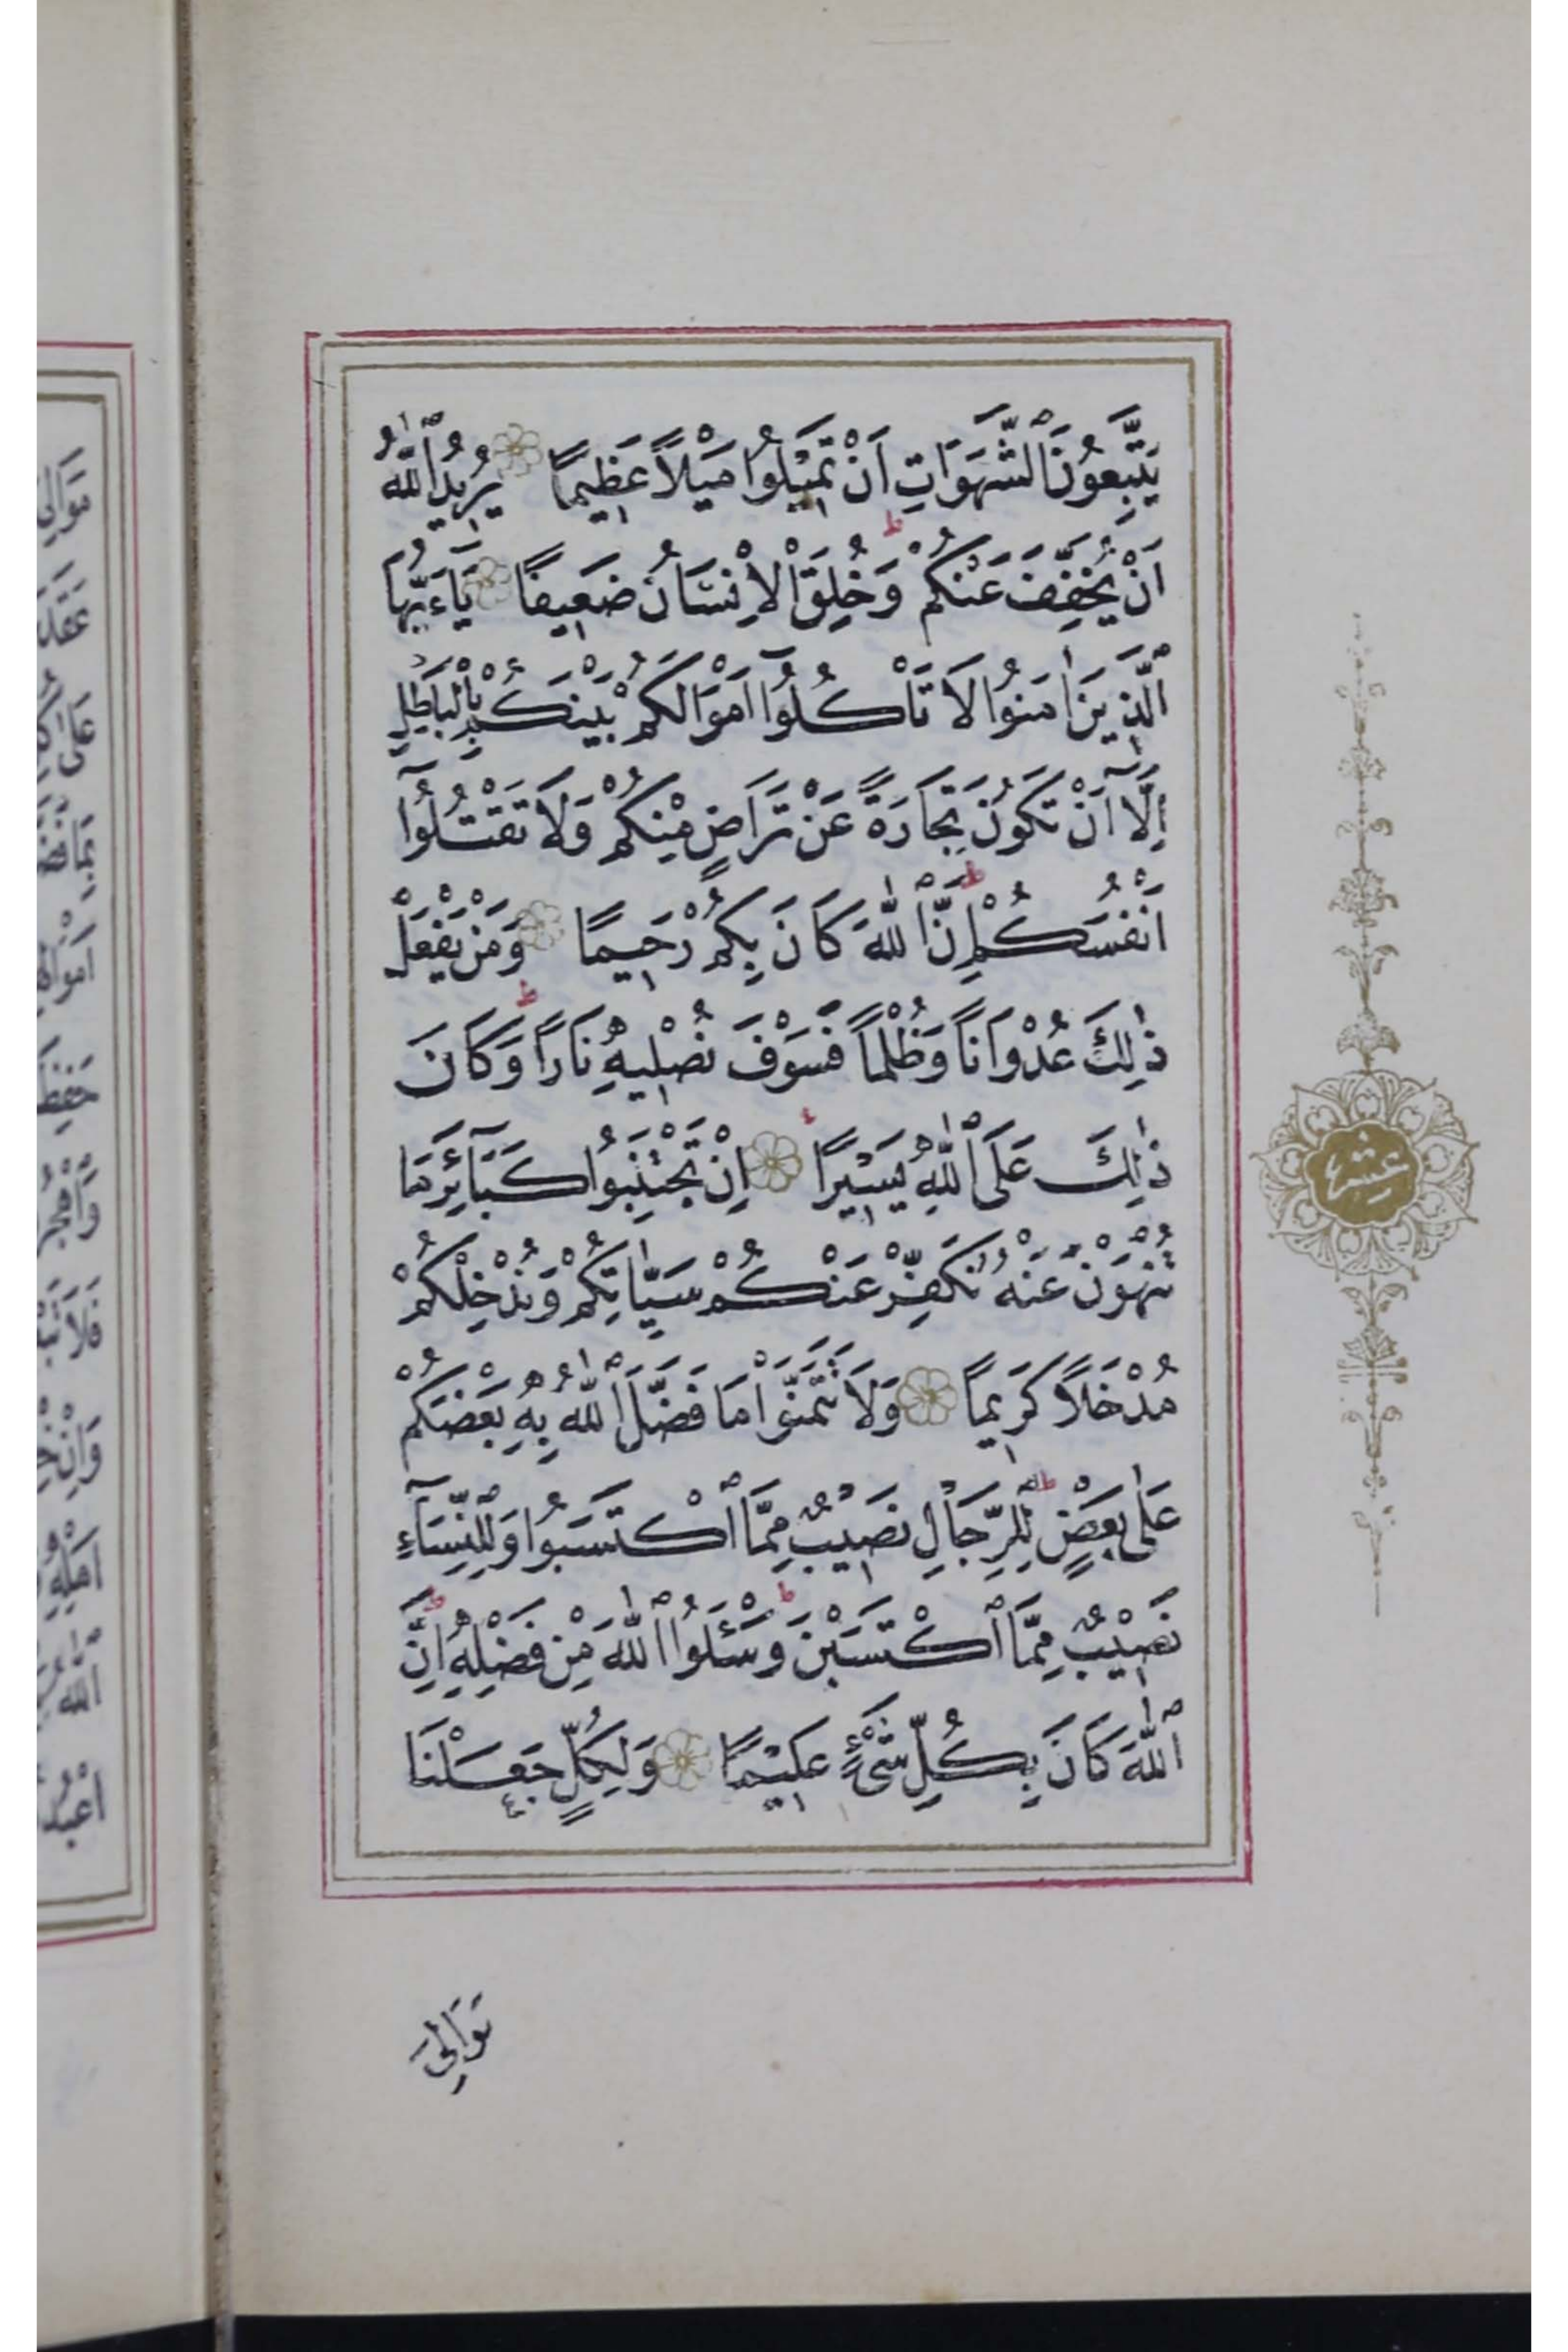 يَتَّبِعُونَ ٱلشَّهَوَاتِ اَنْ تَمِيْلُوا مَيْلاً عَظِيمًا يُرِيدُ ٱللّٰهُ
اَنْ يُخَفِّفَ عَنْكُمْ ط وَخُلِقَ ٱلْاِنْسَانُ ضَعِيفًا يَآءَيُّهَا
ٱلَّذِينَ اٰمَنُوا لَا تَأْكُلُوٓا اَمْوَالَكُمْ بَيْنَكُمْ بِالْبَاطِلِ
اِلَّآ اَنْ تَكُونَ تِجَارَةً عَنْ تَرَاضٍ مِنْكُمْ وَلَا تَقْتُلُوٓا
اَنْفُسَكُمْ ط اِنَّ ٱللّٰهَ كَانَ بِكُمْ رَحِيمًا وَمَنْ يَفْعَلْ
ذٰلِكَ عُدْوَانًا وَظُلْمًا فَسَوْفَ نُصْلِيهِ نَارًا ط وَكَانَ
ذٰلِكَ عَلَى ٱللّٰهِ يَسِيْرًا اِنْ تَجْتَنِبُوا كَبَآئِرَ مَا
تُنْهَوْنَ عَنْهُ نُكَفِّرْ عَنْكُمْ سَيِّاٰتِكُمْ وَنُدْخِلْكُمْ
مُدْخَلًا كَرِيمًا وَلَا تَتَمَنَّوْا مَا فَضَّلَ ٱللّٰهُ بِهٖ بَعْضَكُمْ
عَلٰى بَعْضٍ ط لِلرِّجَالِ نَصِيْبٌ مِمَّا ٱكْتَسَبُوا وَلِلنِّسَآءِ
نَصِيْبٌ مِمَّا ٱكْتَسَبْنَ ط وَسْـَٔلُوا ٱللّٰهَ مِنْ فَضْلِهٖ ط اِنَّ
ٱللّٰهَ كَانَ بِكُلِّ شَىْءٍ عَلِيْمًا وَلِكُلٍّ جَعَلْنَا
عشر
مَوَالِىَ